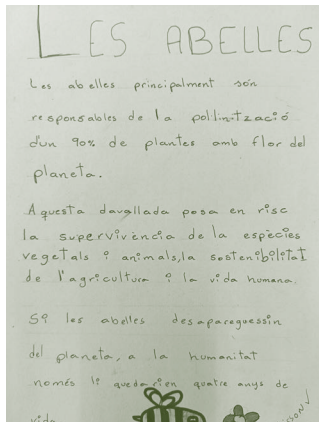 LES ABELLES
Les abelles principalment són
responsables de la pol·linització
d'un 90% de plantes amb flor del
planeta.
Aquesta davallada posa en risc
la supervivència de la espècies
vegetals i animals, la sostenibilitat
de l'agricultura i la vida humana.
Si les abelles desapareguessin
del planeta, a la humanitat
només li quedarien quatre anys de
vida